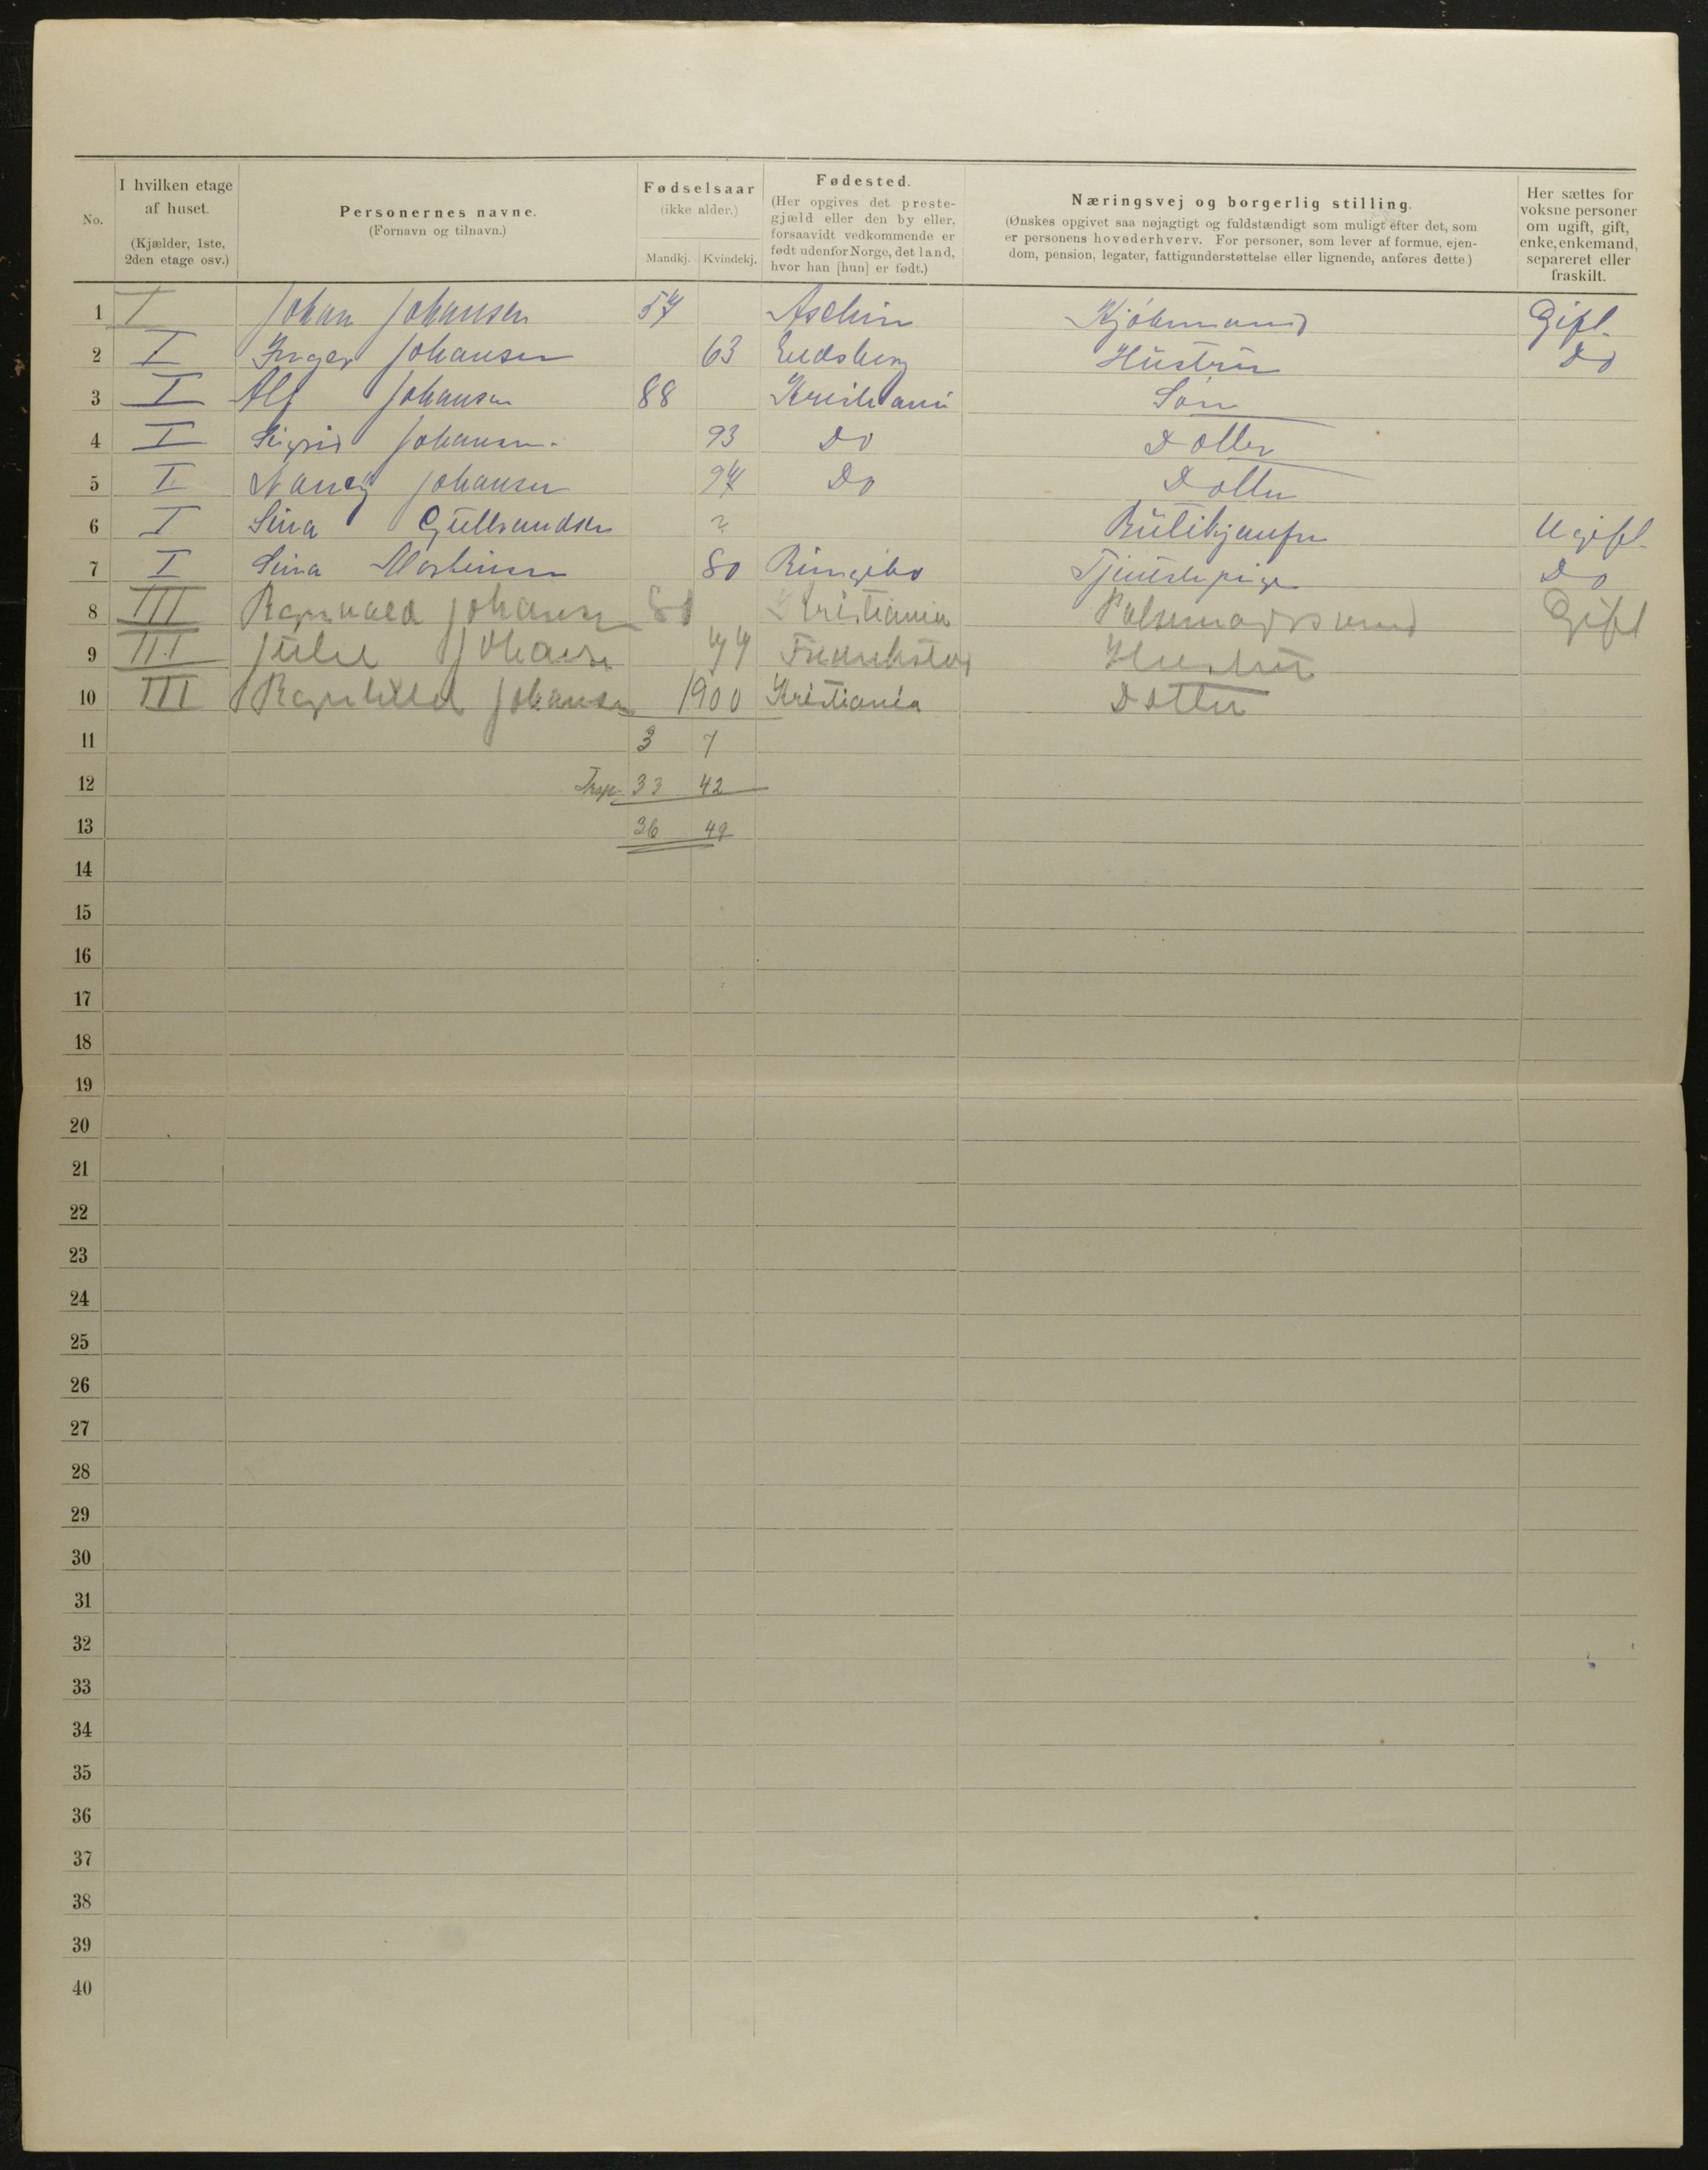 No.
I hvilken etage af huset. (Kjælder, 1ste, 2den etage osv.)
Personernes navne. (Fornavn og tilnavn.)
Fødselsaar (ikke alder.) Mandkj. Kvindekj.
Fødested. (Her opgives det prestegjæld eller den by eller, forsaavidt vedkommende er født udenfor Norge, det land, hvor han [hun] er født.)
Næringsvej og borgerlig stilling. (Ønskes opgivet saa nøjagtigt og fuldstændigt som muligt efter det, som er personens hovederhverv. For personer, som lever af formue, ejendom, pension, legater, fattigunderstøttelse eller lignende, anføres dette.)
Her sættes for voksne personer om ugift, gift, enke, enkemand, separeret eller fraskilt.
1 I Johan Johansen 57 Aschim Kjøbmand Gift
2 I Inger Johansen 63 Eidsberg Hustru Do
3 I Alf Johansen 88 Kristiania Søn
4 I Sigrid Johansen 93 Do Datter
5 I Nancy Johansen 97 Do Datter
6 I Sina Gulbrandsen Butikjomfru Ugift
7 I Lina Martinsen 80 Ringebo Tjenestepige Do
8 III Ragnvald Johansen Kristiania Gift
9 III Julie Johansen 77 Fredrikstad Hustru
10 III Ragnhild Johansen 1900 Kristiania Datter
11 3 7
12 Trsp. 33 42
13 36 49
14
15
16
17
18
19
20
21
22
23
24
25
26
27
28
29
30
31
32
33
34
35
36
37
38
39
40